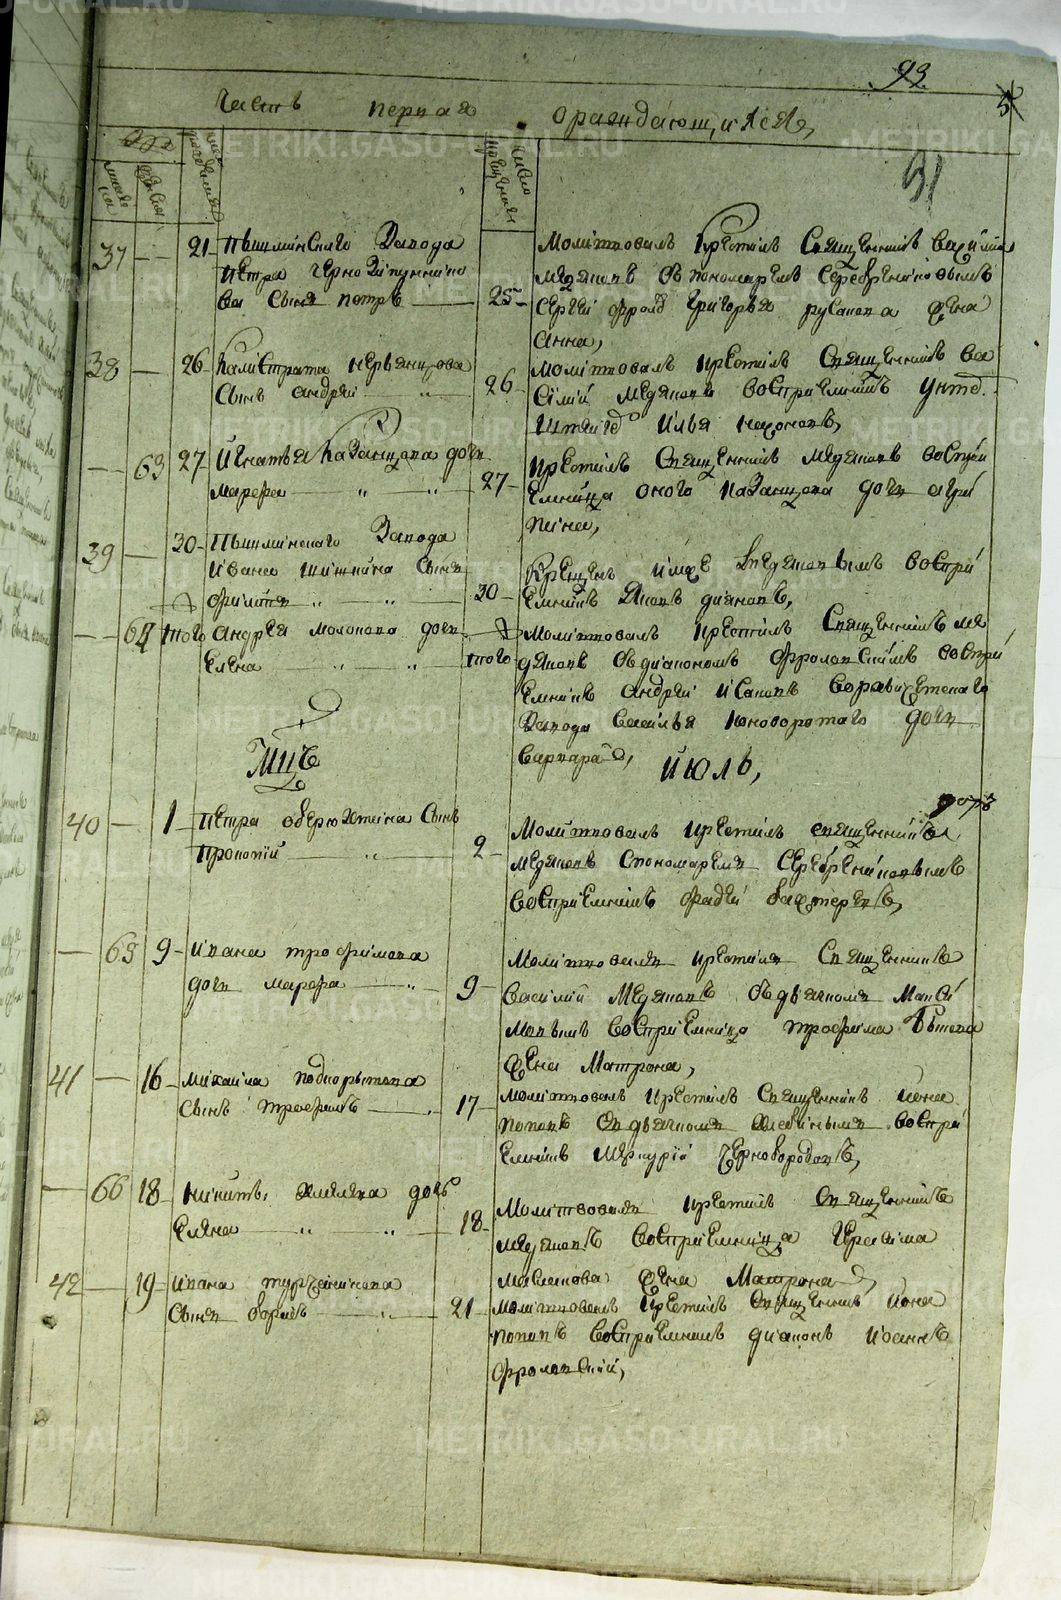 93
5
Часть первая ораждающихся,
91
число рожденія
число крещенія
37 — 21 Пышминскаго Завода
Петра Чернозипунникова
Сынъ Петръ
25
Молитвовалъ Крестилъ Священникъ Василій
Медяковъ съ пономаремъ Серебрениковымъ
Сергей Фролд Григорья Русакова жена
Анна,
38 — 26 Калистрата
Сынъ Андрей
26
Молитвовалъ Крестилъ Священникъ Ва
силий Медяковъ воспріемникъ Унтд.
Илья
— 63 27 Игнатья Казанцова дочь
Марфа
27
Крестилъ Священникъ Медяковъ воспрі
емница оного Казанцова дочь Агри
пина,
39 — 30 Пышминскаго Завода
Ивана Шишкина Сынъ
Филипъ
30
Крещенъ имже Медяковымъ воспрі
емникъ Яковъ
— 64 того Андрея Молокова дочь
Елена
того
Молитвовалъ Крестилъ Священникъ Ме
дяковъ съ диакономъ Фроловскимъ воспрі
емникъ Андрей Исаковъ
Завода Василья Коноворотаго дочь
Варвара,
Мцъ Июль,
40 — 1 Петра оберюхтина Сынъ
Прокопій
2
Молитвовалъ Крестилъ священникъ
Медяковъ спономаремъ Серебрениковымъ
Воспріемникъ Фадей Бахтеревъ,
— 65 9 Ивана трофимова
дочь Марфа
9
Молитвовалъ Крестилъ Священникъ
Василий Медяковъ съдьячкомъ
воспріемница трофима
жена Матрона,
41 — 16 Михаила Подкорытова
Сынъ трофимъ
17
Молитвовалъ Крестилъ Священникъ иона
Поповъ съдьячкомъ Хлебинымъ воспрі
емникъ Меркурій Чернобородовъ,
— 66 18 Никиты Хмелева дочь
Елена
18
Молитвовалъ Крестилъ Священникъ
Медяковъ воспріемница Герасима
Масленова жена Матрона,
42 — 19 Ивана турченинова
Сынъ борисъ
21
Молитвовалъ Крестилъ Священникъ Иона
Поповъ Воспріемникъ диаконъ Иоаннъ
Фроловский,
METRIKI.GASO-URAL.RU